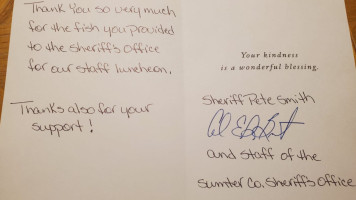 Thank you so very much
for the fish you provided
to the sheriff's office
for our staff luncheon.
Thanks also for your
support!
Your kindness
is a wonderful blessing.
Sheriff Pete Smith
and staff of the
Sumter Co. Sheriff's Office